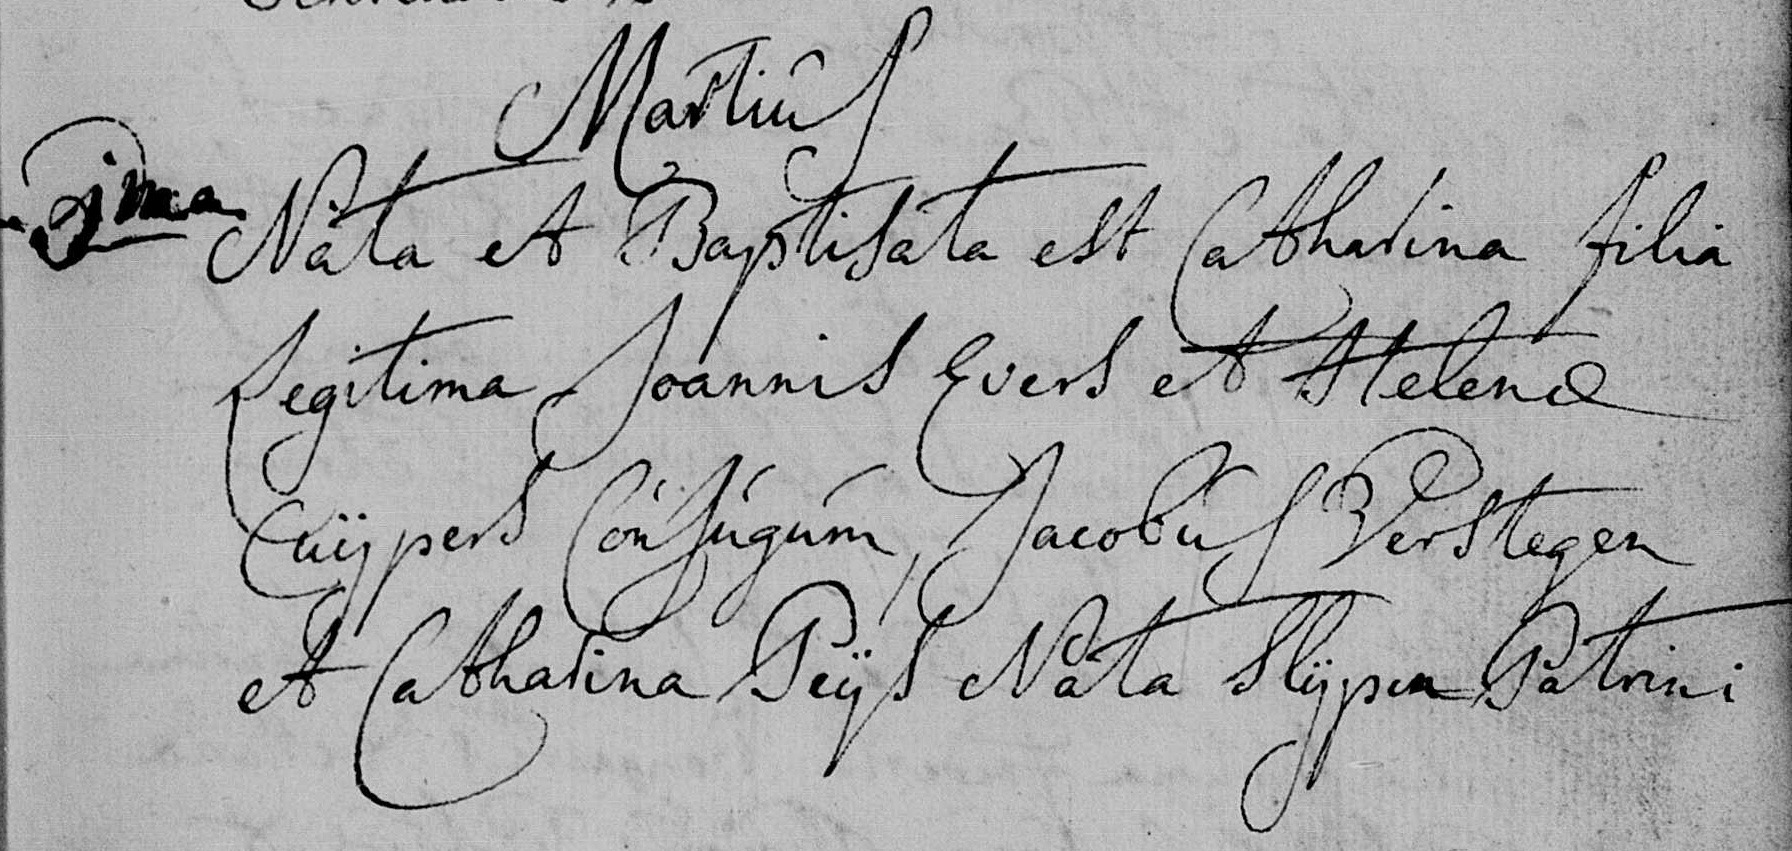 Martius
1ma Nata et Baptisata est Catharina filia
Legitima Joannis Evers et Helenæ
Cuÿpers Conjugum, Jacobus Verstegen
et Catharina Peÿs Nata Slÿpen Patrini